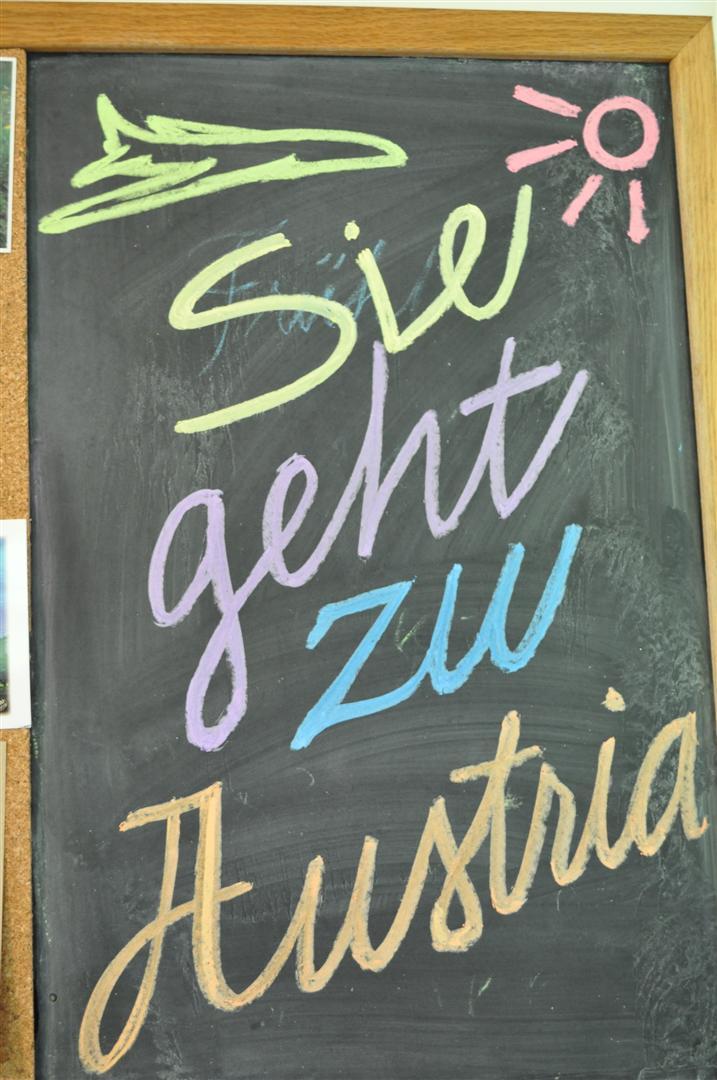 Sie
geht
zu
Austria